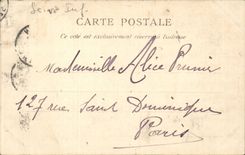 CARTE POSTALE
Ce côté est exclusivement réservé à l'adresse
Mademoiselle Alice Prunier
127 rue Saint Dominique
Paris